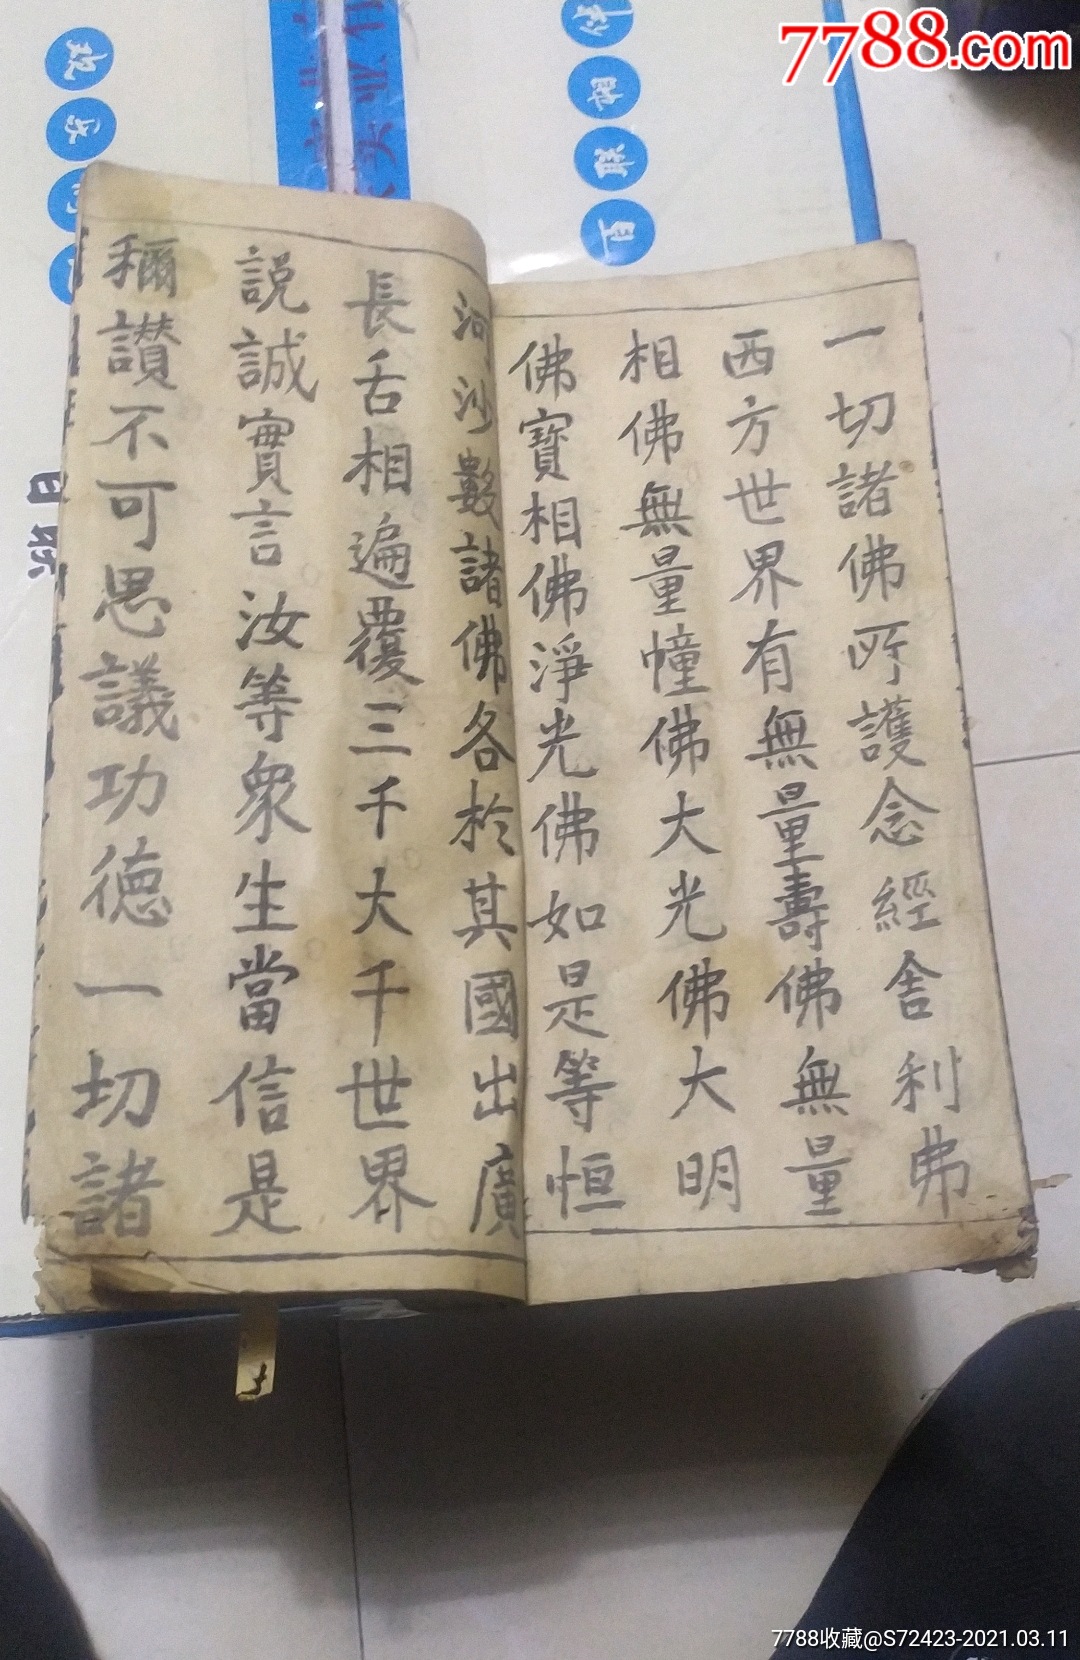 一切諸佛所護念經舍利弗
西方世界有無量壽佛無量
相佛無量幢佛大光佛大明
佛寶相佛淨光佛如是等恒
河沙數諸佛各於其國出廣
長舌相遍覆三千大千世界
說誠實言汝等衆生當信是
稱讚不可思議功德一切諸
7788.com
7788收藏@S72423-2021.03.11